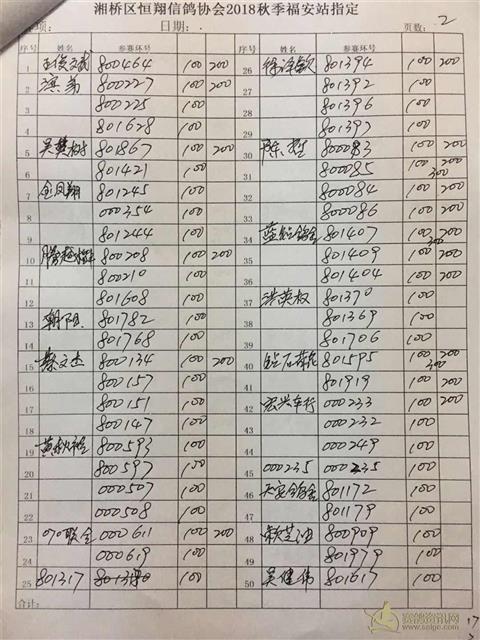 湘桥区恒翔信鸽协会2018秋季福安站指定
项: 日期: 页数: 2
序号 姓名 参赛环号 序号 姓名 参赛环号
1 800464 100 200 26 徐泽钦 801394 100 200
2 滨弟 800227 100 200 27 801392 100
3 800225 100 28 801396 100
4 801628 100 29 801397 100
5 801867 100 200 30 800083 100 200
6 801421 100 31 800085 100 200 300
7 金凤翔 801245 100 32 800084 100 200
8 000354 100 33 800086 100 200
9 801244 100 34 801407 100 200 300
10 800208 100 200 35 801409 100 200
11 800210 100 36 801404 100 200
12 801608 100 37 洪英权 801370 100
13 朝阳 801782 100 38 801369 100
14 801768 100 39 801706 100
15 蔡文杰 800134 100 200 40 801595 100 200 300
16 800157 100 41 801919 100 200
17 800151 100 42 宏兴车行 000233 100 200
18 800147 100 43 000232 100
19 800593 100 44 000249 100
20 800597 100 45 000235 000235 100
21 000507 100 46 天安鸽舍 801172 100
22 000508 100 47 801179 100
23 070联合 000611 100 200 48 赖芝海 800909 100
24 000619 100 49 801979 100
25 801317 100 50 吴健伟 801617 100
合计: